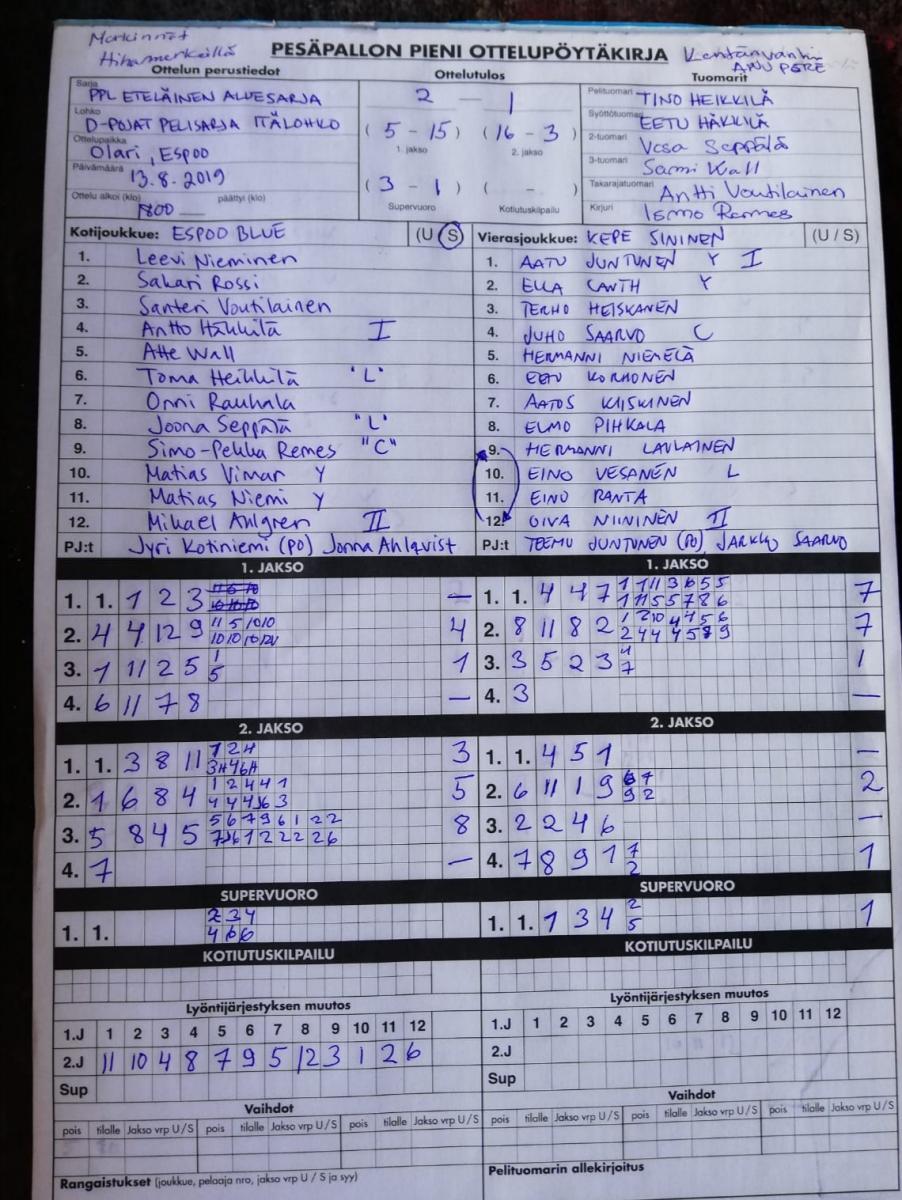 Merkinnät
Hihamerkeillä
PESÄPALLON PIENI OTTELUPÖYTÄKIRJA
Ottelun perustiedot
Ottelutulos
Tuomarit
Sarja PPL ETELÄINEN ALUESARJA
Lohko D-POJAT PELISARJA ITÄLOHKO
Ottelupaikka Olari, ESPOO
Päivämäärä 13.8.2019
Ottelu alkoi (klo) 1800 päättyi (klo)
2 – 1
(5 - 15) (16 - 3)
1. jakso 2. jakso
(3 - 1) ( - )
Supervuoro Kotiutuskilpailu
Pelituomari TINO HEIKKILÄ
Syöttötuomari EETU HÄKKILÄ
2-tuomari Vesa Seppälä
3-tuomari Sami Wall
Takarajatuomari Antti Voutilainen
Kirjuri Ismo Remes
Kotijoukkue: ESPOO BLUE (U / S)
1. Leevi Nieminen
2. Sakari Rossi
3. Santeri Voutilainen
4. Antto Häkkilä I
5. Atte Wall
6. Toma Heikkilä "L"
7. Onni Rauhala
8. Joona Seppälä "L"
9. Simo-Pekka Remes "C"
10. Matias Viman Y
11. Matias Niemi Y
12. Mikael Ahlgren II
PJ:t Jyri Kotiniemi (PO) Jonna Ahlqvist
Vierasjoukkue: KEPE SININEN (U / S)
1. AATU JUNTUNEN Y I
2. ELLA CANTH Y
3. TERHO HEISKANEN
4. JUHO SAARVO C
5. HERMANNI NIEMELÄ
6. EETU KORHONEN
7. AATOS KIISKINEN
8. ELMO PIHKALA
9. HERMANNI LAULAINEN
10. EINO VESANEN L
11. EINO RANTA
12. OIVA NIININEN II
PJ:t TEEMU JUNTUNEN (PO) JARKKO SAARVO
1. JAKSO
1. 1. 1 2 3 –
2. 4 4 12 9 4
3. 1 11 2 5 1 5 1
4. 6 11 7 8 –
1. JAKSO
1. 1. 4 4 7 1 1 11 3 6 5 5 7
1 11 5 5 7 8 6
2. 8 11 8 2 7
3. 3 5 2 3 4 7 1
4. 3 –
2. JAKSO
1. 1. 3 8 11 3
2. 1 6 8 4 5
3. 5 8 4 5 5 6 7 9 6 1 2 2 8
4. 7 –
2. JAKSO
1. 1. 4 5 1 –
2. 6 11 1 9 6 7 2
9 2
3. 2 2 4 6 –
4. 7 8 9 1 7 2 1
SUPERVUORO
1. 1. 2 3 4
4 6 6
SUPERVUORO
1. 1. 1 3 4 2 5 1
KOTIUTUSKILPAILU
KOTIUTUSKILPAILU
Lyöntijärjestyksen muutos
1.J 1 2 3 4 5 6 7 8 9 10 11 12
2.J 11 10 4 8 7 9 5 12 3 1 2 6
Sup
Lyöntijärjestyksen muutos
1.J 1 2 3 4 5 6 7 8 9 10 11 12
2.J
Sup
Vaihdot
pois tilalle Jakso vrp U / S pois tilalle Jakso vrp U / S pois tilalle Jakso vrp U / S
Vaihdot
pois tilalle Jakso vrp U / S pois tilalle Jakso vrp U / S pois tilalle Jakso vrp U / S
Rangaistukset (joukkue, pelaaja nro, jakso vrp U / S ja syy)
Pelituomarin allekirjoitus